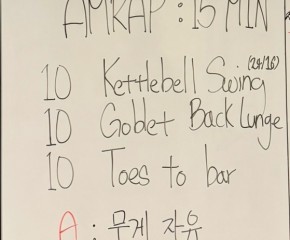 AMRAP : 15 MIN
10 Kettlebell Swing (24/16)
10 Goblet Back Lunge
10 Toes to bar
A : 무게 자유